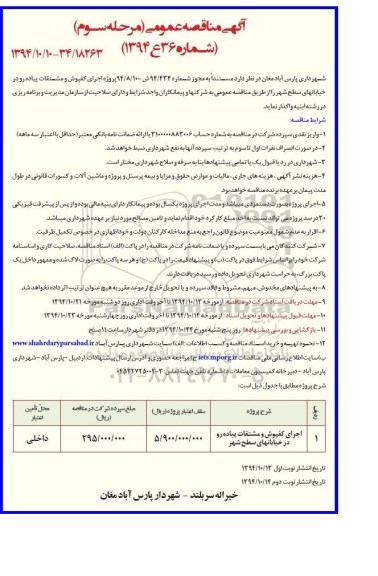 آگهی مناقصه عمومی (مرحله سوم)
(شماره ۳۶ع ۱۳۹۴) ۱۳۹۴/۱۰/۱۰-۳۴/۱۸۲۶۳
شهرداری پارس آباد مغان در نظر دارد مستنداً به مجوز شماره ۹۴/۴۳۴ ش - ۹۴/۸/۱۰۰ پروژه اجرای کفپوش و مشتقات پیاده رو در
خیابانهای سطح شهر را از طریق مناقصه عمومی به شرکتها و پیمانکاران واجد شرایط و دارای صلاحیت از سازمان مدیریت و برنامه ریزی
در رشته ابنیه واگذار نماید.
شرایط مناقصه:
۱- واریز نقدی سپرده شرکت در مناقصه به شماره حساب ۳۱۰۰۰۰۰۸۸۳۰۰۶ یا ارائه ضمانت نامه بانکی معتبر (حداقل با اعتبار سه ماهه)
۲- در صورت انصراف نفرات اول تا سوم به ترتیب سپرده آنها به نفع شهرداری ضبط خواهد شد.
۳- شهرداری در رد یا قبول یک یا تمامی پیشنهادها بنا به صرفه و صلاح شهرداری مختار است.
۴- هزینه نشر آگهی، هزینه های جاری، مالیات و عوارض حقوق و مزایا و بیمه پرسنل و پروژه و ماشین آلات و کسورات قانونی در طول
مدت پیمان بر عهده برنده مناقصه خواهد بود.
۵- اجرای پروژه بصورت دستمزدی میباشد و مدت اجرای پروژه یکسال بوده و پیمانکار دارای بنیه مالی بوده و از پس از پیشرفت فیزیکی
۲۰ درصد پروژه می تواند نسبت به اخذ مبلغ کارکرد خود اقدام نماید و تامین مصالح مورد نیاز بر عهده شهرداری میباشد.
۶- اقرار به عدم شمول ممنوعیت موضوع قانون راجع به منع مداخله کارکنان دولت و خود اظهاری در خصوص تکمیل ظرفیت.
۷- شرکت کنندگان می بایست سپرده و یا ضمانت نامه شرکت در مناقصه را در پاکت (الف) اسناد مناقصه، صلاحیت کاری و اساسنامه
شرکت خود را بر اساس شرایط فوق در پاکت (ب) و پیشنهاد قیمت را در پاکت (ج) و هر سه پاکت را به صورت لاک شده و ممهور داخل یک
پاکت بزرگ به حراست شهرداری تحویل داده و رسید دریافت دارند.
۸- به پیشنهادهای مخدوش، مبهم، مشروط و فاقد سپرده و یا تحویل خارج از موعد مقرر به هیچ عنوان ترتیب اثر داده نخواهد شد.
۹- مهلت دریافت اسناد شرکت در مناقصه: از مورخه ۱۳۹۴/۱۰/۱۳ تا آخر وقت اداری روز دوشنبه مورخه ۱۳۹۴/۱۰/۲۱
۱۰- مهلت قبول پیشنهادها و تحویل اسناد: از مورخه ۱۳۹۴/۱۰/۱۴ تا آخر وقت اداری روز چهارشنبه مورخه ۱۳۹۴/۱۰/۲۳
۱۱- بازگشایی و بررسی پیشنهادها: روز پنج شنبه مورخ ۱۳۹۴/۱۰/۲۴ در دفتر شهردار ساعت ۱۱ صبح
۱۲- نحوه تهیه و خرید اسناد مناقصه و کسب اطلاعات: الف) سایت شهرداری پارس آباد www.shahrdaryparsabad.ir
ب) سایت اطلاع رسانی ملی مناقصات iets.mporg.ir ج) مراجعه حضوری و آدرس ارسال پیشنهادات: اردبیل - پارس آباد - شهرداری
پارس آباد - دبیرخانه کمیسیون معاملات د) شماره تلفن جهت تماس: ۳-۰۴۵۳۲۷۲۵۰۰۲
شرح پروژه مطابق با جدول ذیل است:
ردیف شرح پروژه سقف اعتبار پروژه (ریال) مبلغ سپرده شرکت در مناقصه (ریال) محل تأمین اعتبار
۱ اجرای کفپوش و مشتقات پیاده رو در خیابانهای سطح شهر ۵/۹۰۰/۰۰۰/۰۰۰ ۲۹۵/۰۰۰/۰۰۰ داخلی
تاریخ انتشار نوبت اول ۱۳۹۴/۱۰/۱۳
تاریخ انتشار نوبت دوم ۱۳۹۴/۱۰/۱۴
خیراله سربلند - شهردار پارس آباد مغان